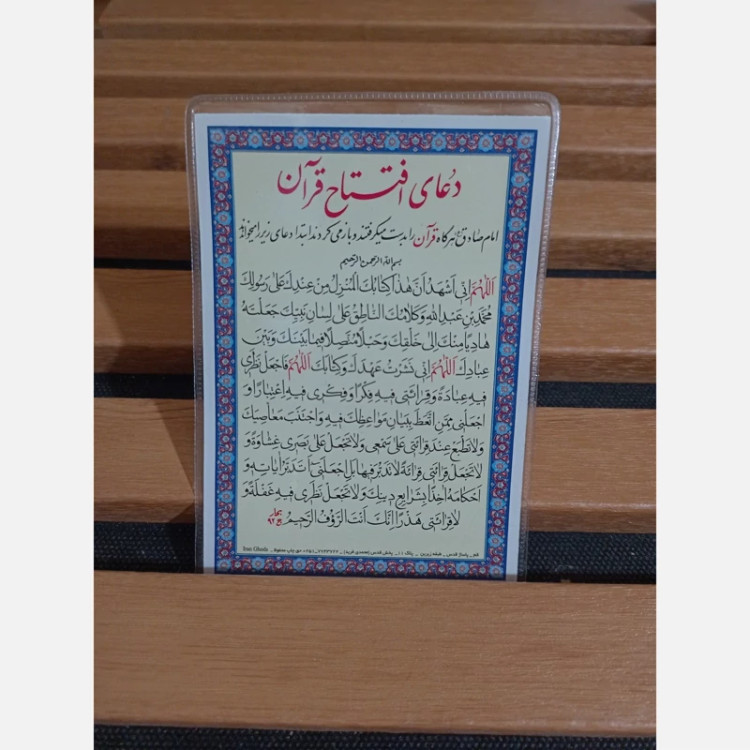 دُعای افتتاح قرآن
امام صادق ع هر گاه قرآن را بدست میگرفتند و باز می کردند ابتدا دعای زیر را میخواندند
بسم الله الرحمن الرحیم
اَللّهُمَّ اِنّی اَشْهَدُ اَنَّ هٰذا کِتابُكَ الْمُنْزَلُ مِنْ عِنْدِكَ عَلیٰ رَسُولِكَ
مُحَمَّدِ بْنِ عَبْدِ اللهِ وَ کَلامُكَ النّاطِقُ عَلیٰ لِسانِ نَبِیِّكَ جَعَلْتَهُ
هادِیاً مِنْكَ اِلیٰ خَلْقِكَ وَ حَبْلاً مُتَّصِلاً فیما بَیْنَكَ وَ بَیْنَ
عِبادِكَ اَللّهُمَّ اِنّی نَشَرْتُ عَهْدَكَ وَ کِتابَكَ اَللّهُمَّ فَاجْعَلْ نَظَری
فیهِ عِبادَةً وَ قِرائَتی فیهِ فِکْراً وَ فِکْری فیهِ اعْتِباراً وَ
اجْعَلْنی مِمَّنِ اتَّعَظَ بِبَیانِ مَواعِظِكَ فیهِ وَ اجْتَنَبَ مَعاصیكَ
وَ لا تَطْبَعْ عِنْدَ قِرائَتی عَلیٰ سَمْعی وَ لا تَجْعَلْ عَلیٰ بَصَری غِشاوَةً وَ
لا تَجْعَلْ قِرائَتی قِرائَةً لا تَدَبُّرَ فیها بَلِ اجْعَلْنی اَتَدَبَّرُ ایاتِهِ وَ
اَحْکامَهُ اخِذاً بِشَرایِعِ دینِكَ وَ لا تَجْعَلْ نَظَری فیهِ غَفْلَةً وَ
لا قِرائَتی هَذَراً اِنَّكَ اَنْتَ الرَّؤُفُ الرَّحیمُ
قم _ پاساژ قدس _ طبقه زیرین _ پلاک ۱۱ _ پخش قدس